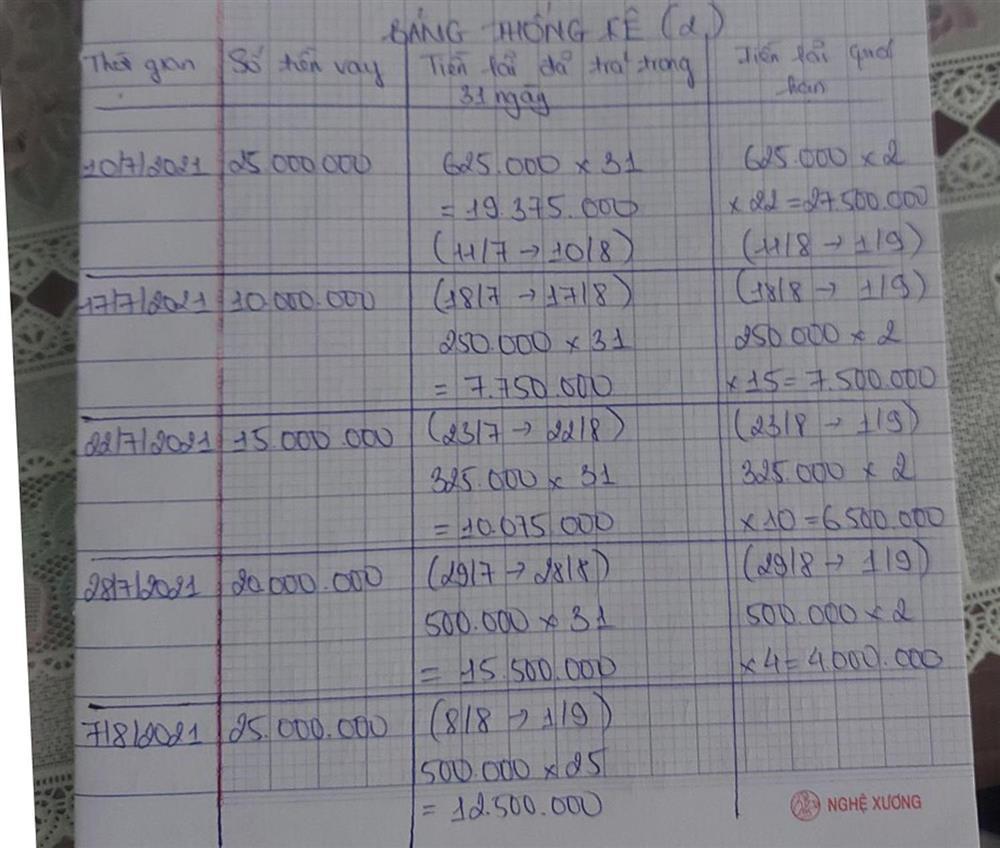 BẢNG THỐNG KÊ (2)
Thời gian Số tiền vay Tiền lãi đã trả trong 31 ngày Tiền lãi quá hạn
10/7/2021 25.000.000 625.000 x 31 625.000 x 2
= 19.375.000 x 22 = 27.500.000
(11/7 → 10/8) (11/8 → 1/9)
17/7/2021 10.000.000 (18/7 → 17/8) (18/8 → 1/9)
250.000 x 31 250.000 x 2
= 7.750.000 x 15 = 7.500.000
22/7/2021 15.000.000 (23/7 → 22/8) (23/8 → 1/9)
325.000 x 31 325.000 x 2
= 10.075.000 x 10 = 6.500.000
28/7/2021 20.000.000 (29/7 → 28/8) (29/8 → 1/9)
500.000 x 31 500.000 x 2
= 15.500.000 x 4 = 4.000.000
7/8/2021 25.000.000 (8/8 → 1/9)
500.000 x 25
= 12.500.000
NGHỆ XƯƠNG